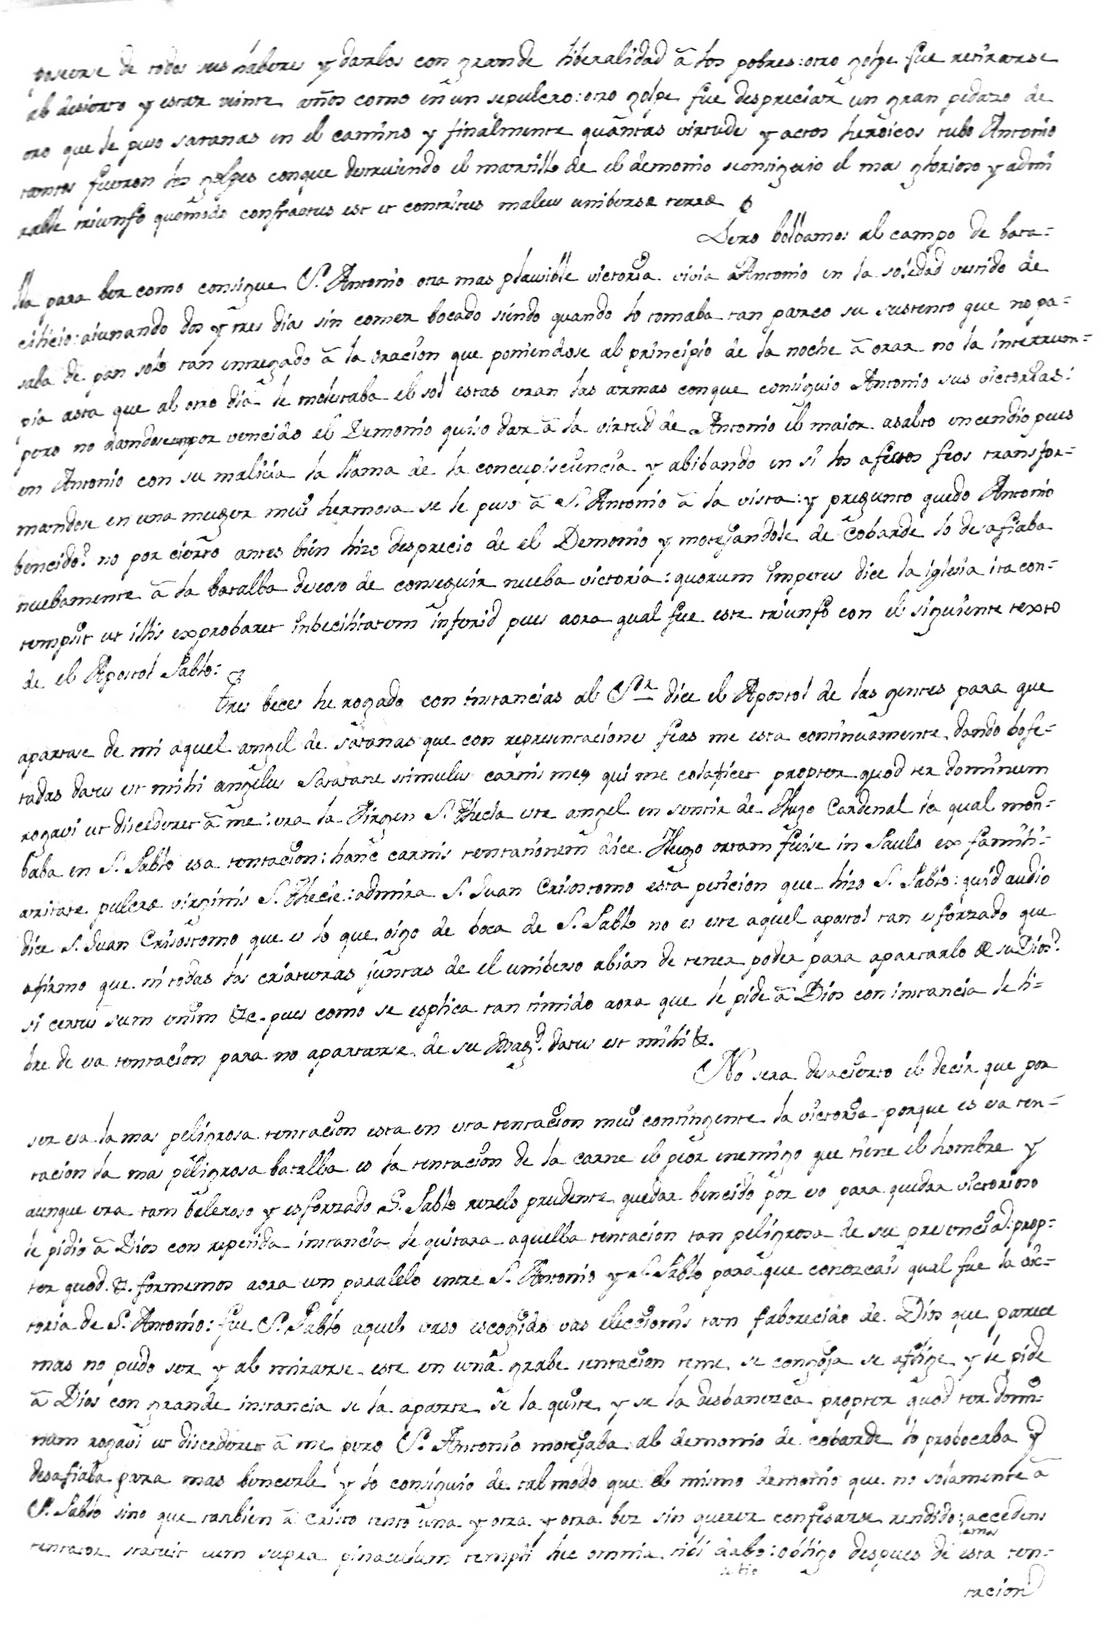 poserse de todos sus haberes y darlos con grande liberalidad â los pobres: otro golpe fue retirarse
al desierto y estar veinte años como en un sepulcro: otro golpe fue despreciar un gran pedazo de
oro que le puso satanas en el camino y finalmente quantas virtudes y actos heroicos tubo Antonio
tantos fueron los golpes conque destruiendo el martillo de el demonio consiguio el mas glorioso y admi
rable triunfo quomodo confractus est et contritus maleus unibersæ terræ
Pero bolbamos al campo de bata=
lla para ber como consigue S. Antonio otra mas plausible victoria. vivia Antonio en la soledad vestido de
cilicio: aiunando dos y tres dias sin comer bocado siendo quando lo tomaba tan parco su sustento que no pa=
saba de pan solo tan entregado â la oracion que poniendose al principio de la noche â orar no la interrum=
pia asta que al otro dia le molestaba el sol estas eran las armas conque consiguio Antonio sus victorias:
pero no dandose por vencido el Demonio quiso dar â la virtud de Antonio el maior asalto encendio pues
en Antonio con su malicia la llama de la concupiscencia y abibando en si los afectos feos transfor=
mandose en una muger mui hermosa se le puso â S. Antonio â la vista: y pregunto quedo Antonio
bencido? no por cierto antes bien hizo desprecio de el Demonio y motejandole de cobarde lo desafiaba
nuebamente â la batalla deseoso de conseguir nueba victoria: quorum impetus dice la iglesia ita con=
tempsit ut illis exprobaret inbecilitatem inferid pues aora qual fue este triunfo con el siguiente texto
de el Apostol Pablo:
tres beces he rogado con instancias al Sr. dice el Apostol de las gentes para que
apartase de mi aquel angel de satanas que con representaciones feas me esta continuamente dando bofe=
tadas datus est mihi angelus Satanæ stimulus carnis meę qui me colaficet propter quod ter dominum
rogavi ut discederet â me: era la Virgen S. Thecla este angel en sentir de Hugo Cardenal la qual mon=
baba en S. Pablo esa tentacion: hanc carnis tentationem dice Hugo ortam fuisse in Paulo ex famili=
aritate pulcræ virginis S. Theclę: admira S. Juan Crisostomo esta peticion que hizo S. Pablo: quid audio
dice S. Juan Crisostomo que es lo que oigo de boca de S. Pablo no es este aquel apostol tan esforzado que
afirmo que ni todas las criaturas juntas de el uniberso abian de tener poder para apartarlo de su Dios?
si certus sum enim &c. pues como se esplica tan timido aora que le pide â Dios con instancia le li=
bre de esa tentacion para no apartarse de su Magd. datus est mihi &.
No sera desacierto el decir que por
ser esa la mas peligrosa tentacion esta en esta tentacion mui contingente la victoria porque es esa ten=
tacion la mas peligrosa batalla es la tentacion de la carne el peor enemigo que tiene el hombre y
aunque era tan beleroso y esforzado S. Pablo rezelo prudente quedar bencido por eso para quedar victorioso
le pidio â Dios con repetida instancia le quitara aquella tentacion tan peligrosa de su presencia: prop=
ter quod &. formemos aora un paralelo entre S. Antonio y S. Pablo para que conozcais qual fue la vic=
toria de S. Antonio: fue S. Pablo aquel vaso escogido vas electionis tan faborecido de Dios que parece
mas no pudo ser y al mirarse este en una grabe tentacion teme se congoja se aflige y le pide
â Dios con grande instancia se la aparte se la quite y se la desbanezca propter quod ter domi=
num rogavi ut discederet â me pero S. Antonio motejaba al demonio de cobarde lo probocaba y
desafiaba para mas bencerle y lo consiguio de tal modo que el mismo demonio que no solamente â
S. Pablo sino que tanbien â Cristo tento una y otra y otra bez sin querer confesarse rendido: accedens
tentator statuit eum supra pinaculum templi hec omnia tibi dabo: obligo despues de esta ten=
tacion